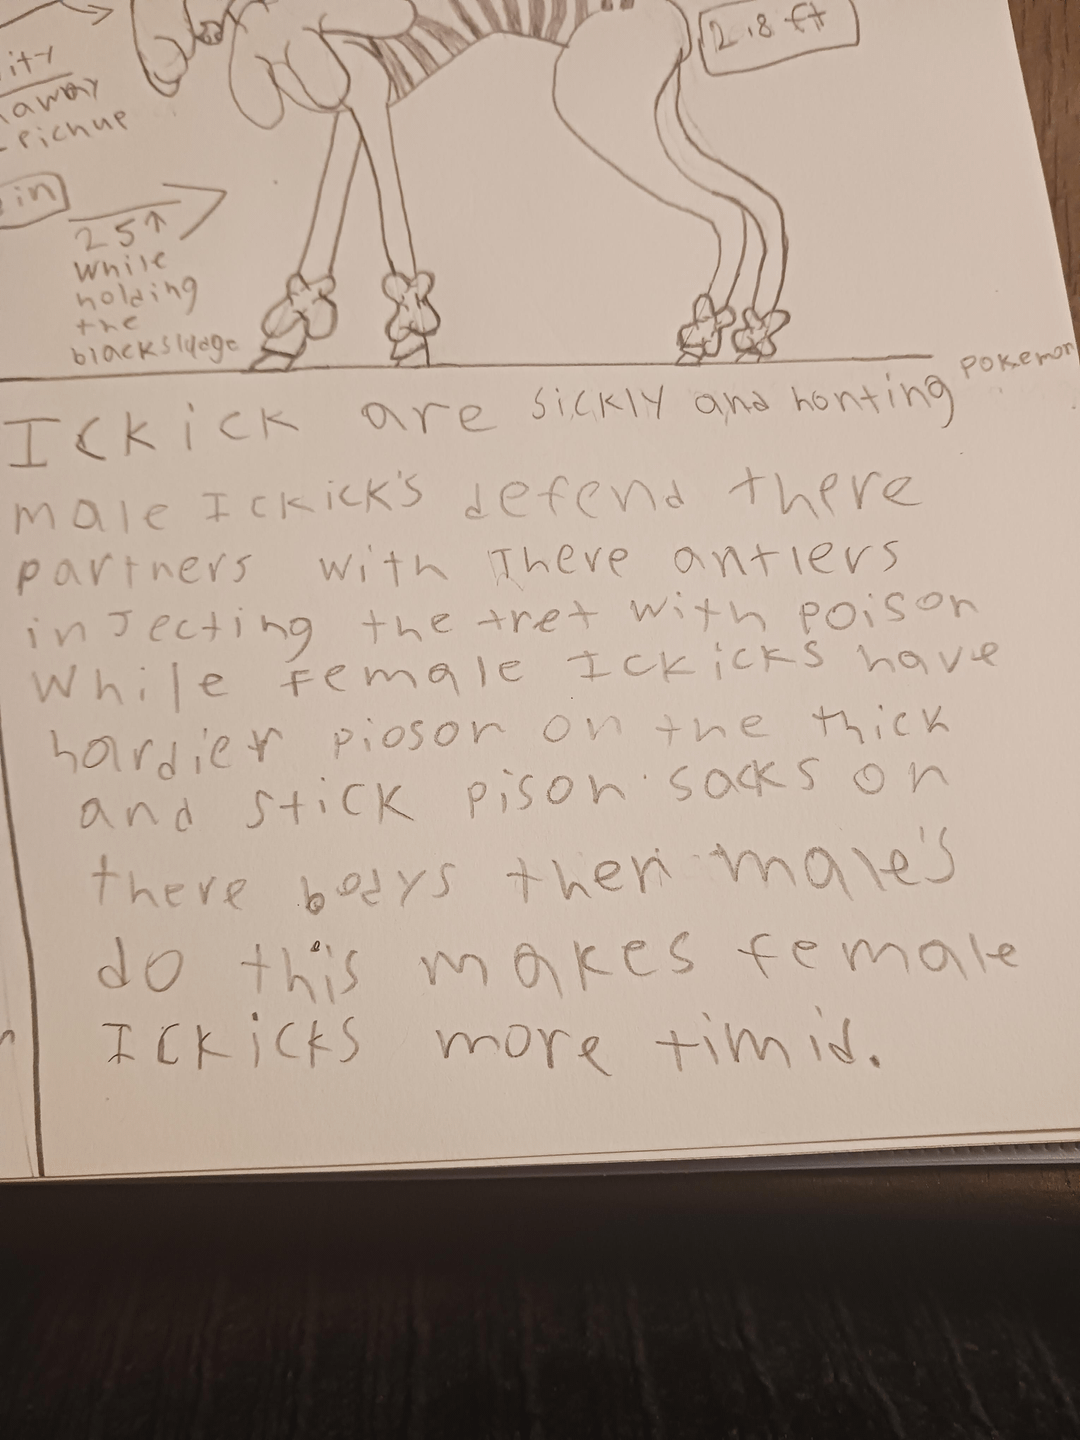 2.8 ft
ity
away
Pickup
in
25↑
while
holding
the
blacksludge
Ickick are sickly and honting pokemon
male Ickick's defend there
partners with there antlers
injecting the tret with poison
While female Ickicks have
hardier pioson on the thick
and stick pison sacks on
there bodys then male's
do this makes female
Ickicks more timid.